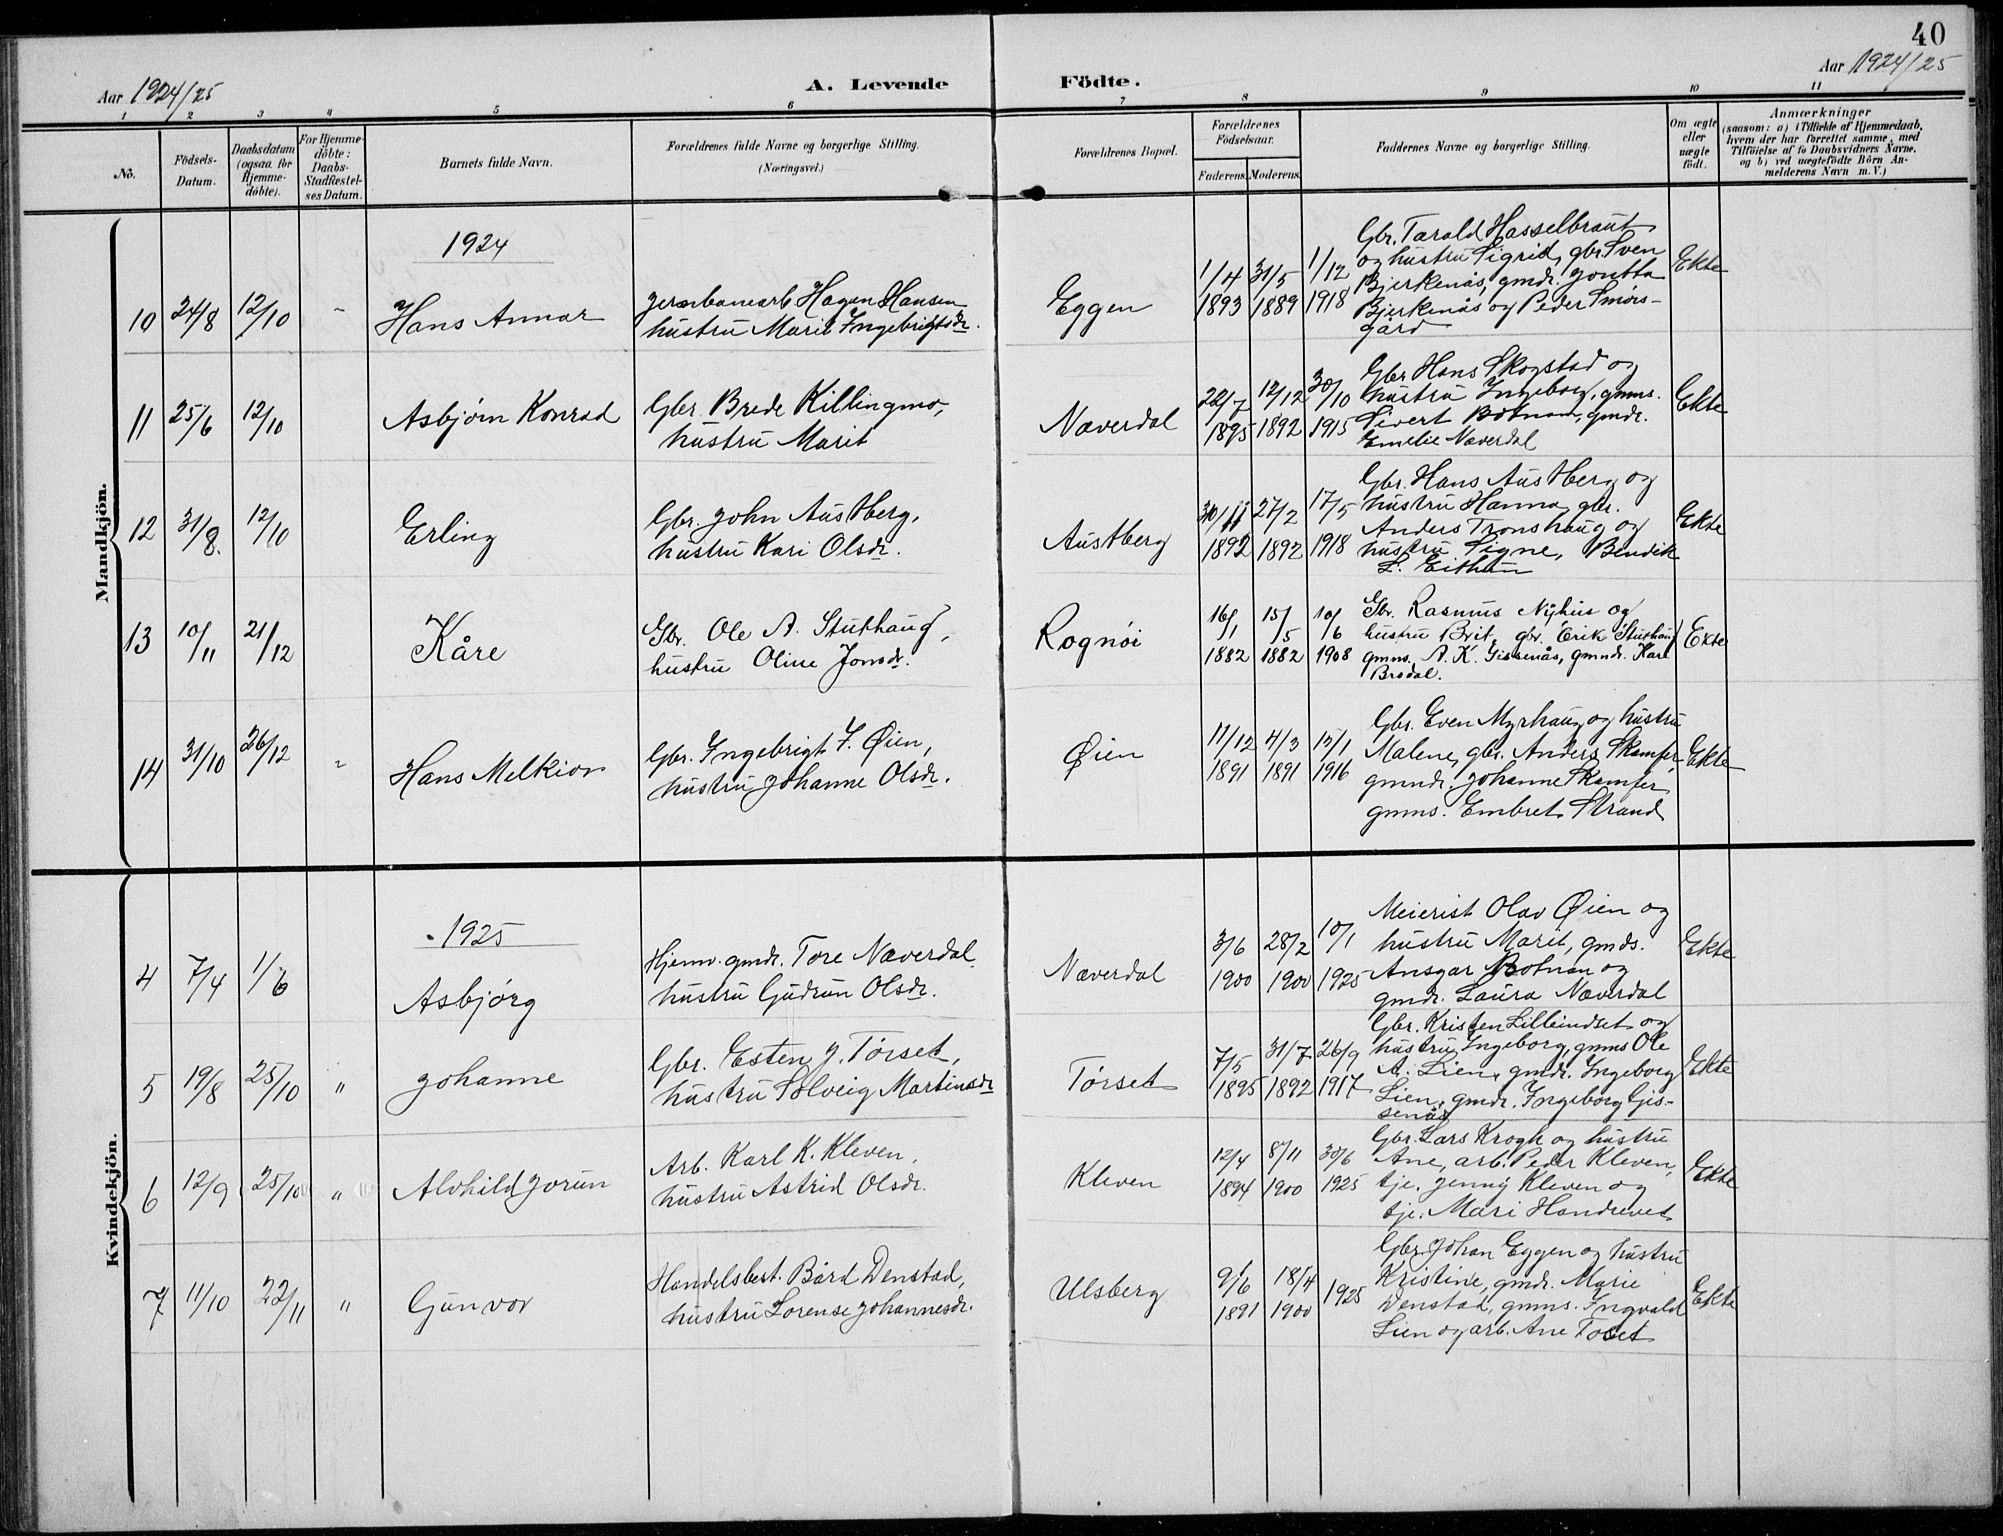 40
Aar 1924/25
A. Levende Födte.
Aar 1924/25
1 2 3 4 5 6 7 8 9 10 11
No.
Födsels-Datum.
Daabsdatum (ogsaa for Hjemme-döbte).
For Hjemme-döbte: Daabs-Stadfæstel-ses Datum.
Barnets fulde Navn.
Forældrenes fulde Navne og borgerlige Stilling.
(Næringsvei.)
Forældrenes Bopæl.
Forældrenes Födselsaar.
Faderens. Moderens.
Faddernes Navne og borgerlige Stilling.
Om ægte eller uægte födt.
Anmærkninger
(saasom: a) i Tilfælde af Hjemmedaab,
hvem der har forrettet samme, med
Tilföielse af to Daabsvidners Navne,
og b) ved uægtefödte Börn An-
melderens Navn m.V.)
Mandkjön.
1924
10 24/8 12/10 Hans Annar
jernbanearb. Hagen Hansen
hustru Marit Ingebrigtsdr.
Eggen
1/4 1893 31/5 1889 1/12 1918
Gbr. Tarald Hasselbraut
og hustru Sigrid, gbr. Sven
Bjerkenås, gmdr. Jonetta
Bjerkenås og Peder Smörs-
gård
Ekte
11 25/6 12/10 Asbjørn Konrad
Gbr. Brede Killingmo,
hustru Marit
Næverdal
22/7 1895 12/12 1892 30/10 1915
Gbr. Hans Skogstad og
hustru Ingeborg, gmns.
Sivert Botnan, gmdr.
Emelie Næverdal
Ekte
12 31/8. 12/10 Erling
Gbr. John Austberg,
hustru Kari Olsdr.
Austberg
30/11 1892 27/2 1892 17/5 1918
Gbr. Hans Austberg og
hustru Hanna, gbr.
Anders Tronshaug og
hustru Signe, Bendik
L. Eithun
Ekte
13 10/11 21/12 Kåre
Gbr. Ole A. Stuthaug,
hustru Oline Jonsdr.
Rognöi
16/1 1882 15/5 1882 10/6 1908
Gbr. Rasmus Nyhus og
hustru Brit, gbr. Erik Stuthaug
gmns. A. K. Gissenås, gmndr. Kari
Brodal.
Ekte
14 31/10 26/12 " Hans Melkior
Gbr. Ingebrigt J. Øien,
hustru Johanne Olsdr.
Øien
11/12 1891 4/3 1891 15/1 1916
Gbr. Even Myrhaug og hustru
Malene, gbr. Anders Skamfer,
gmndr. Johanne Skamfer
gmns. Embret Strand
Ekte
Kvindekjön.
1925
4 7/4 1/6 Asbjørg
Hjemv. gmdr. Tore Næverdal
hustru Gudrun Olsdr.
Næverdal
3/6 1900 28/2 1900 10/1 1925
Meierist Olav Øien og
hustru Marit, gmds.
Ansgar Botnan og
gmdr. Laura Næverdal
Ekte
5 19/8 25/10 " Johanne
Gbr. Esten J. Tørset,
hustru Solveig Martinsdr
Tørset
7/5 1895 31/7 1892 26/9 1917
Gbr. Kristen Lilleindset og
hustru Ingeborg, gmns Ole
A. Lien, gmdr. Ingeborg
Lien, gmdr. Ingeborg Gis-
senås
Ekte
6 12/9 25/10 " Alvhild Jorun
Arb. Karl K. Kleven,
hustru Astrid Olsdr.
Kleven
12/4 1894 8/11 1900 30/6 1925
Gbr. Lars Krogh og hustru
Ane, arb. Peder Kleven,
tje. Jenny Kleven og
tje. Mari Handrevet
Ekte
7 11/10 22/11 " Gunvor
Handelsbest. Bård Denstad,
hustru Lorense Johannesdr.
Ulsberg
9/6 1891 18/4 1900 1925
Gbr. Johan Eggen og hustru
Kristine, gmdr. Marie
Denstad, gmns. Ingvald
Lien og arb. Ane Toset
Ekte